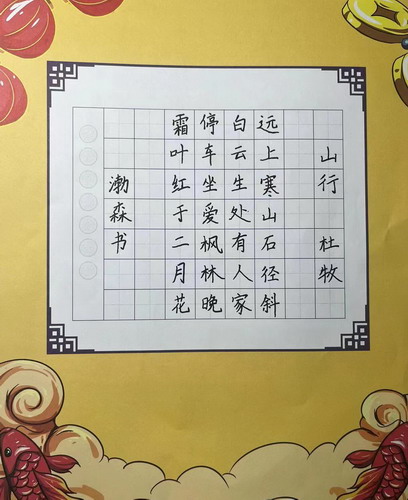 山行 杜牧
远上寒山石径斜
白云生处有人家
停车坐爱枫林晚
霜叶红于二月花
渤森书